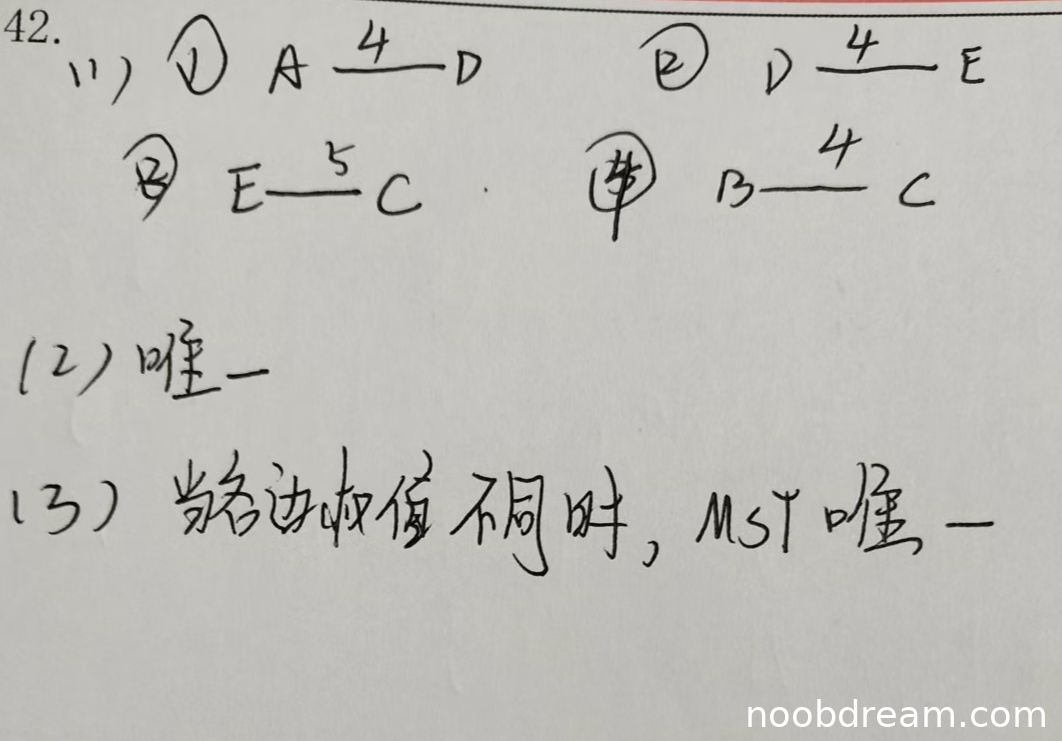 42.
(1) ① A 4 D ② D 4 E
③ E 5 C ④ B 4 C
(2) 唯一
(3) 当各边权值不同时, MST 唯一
noobdream.com